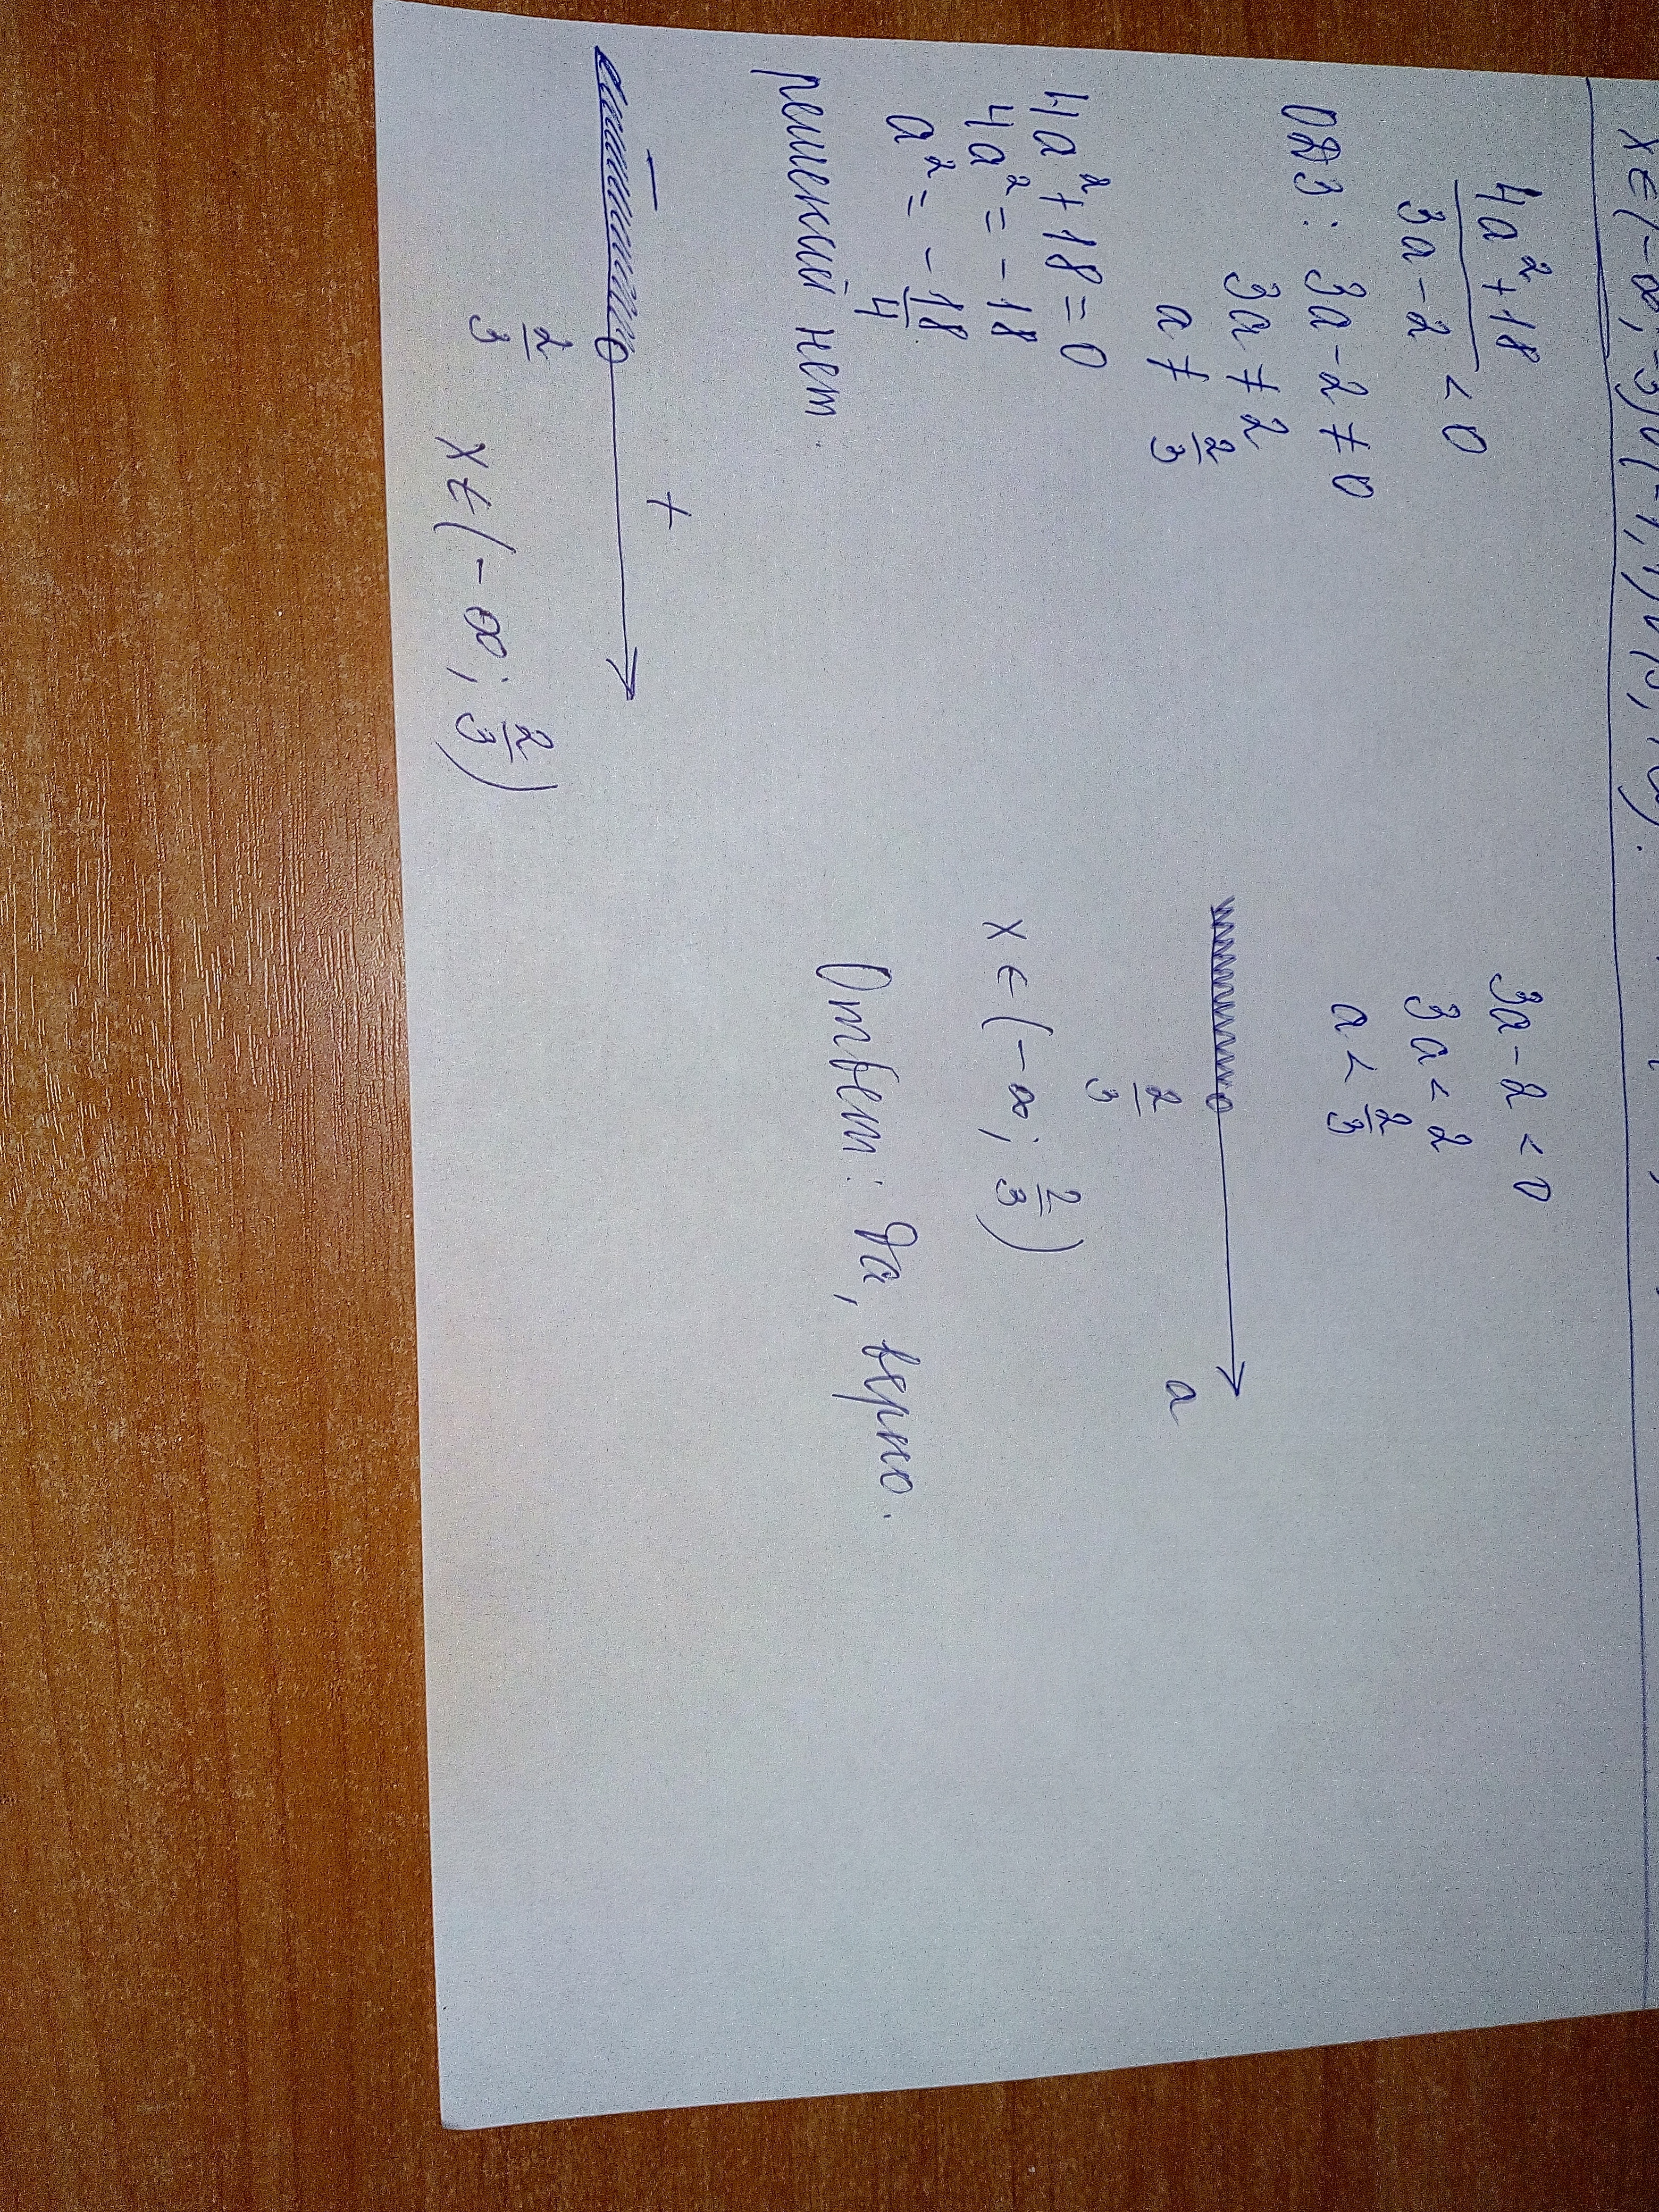 x ∈ (-∞; -3) ∪ (-1; 1) ∪ (3;
4a² + 18
3a - 2
< 0
ОДЗ: 3a - 2 ≠ 0
3a ≠ 2
a ≠ 2/3
4a² + 18 = 0
4a² = -18
a² = -18/4
решений нет.
- +
2/3
x ∈ (-∞; 2/3)
3a - 2 < 0
3a < 2
a < 2/3
2/3 a
x ∈ (-∞; 2/3)
Ответ: Да, верно.